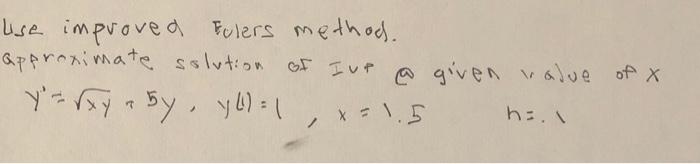 Use improved Eulers method.
approximate solution of IVP @ given value of x
y' = √xy + 5y, y(1) = 1, x = 1.5 h=.1